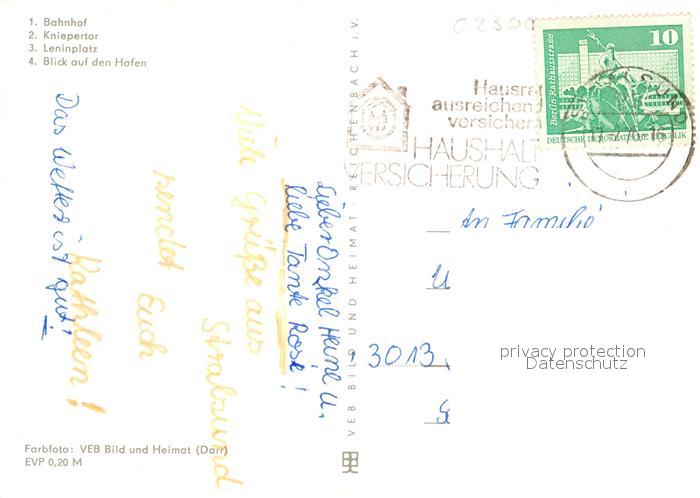 1. Bahnhof
2. Kniepertor
3. Leninplatz
4. Blick auf den Hafen
Lieber Onkel Heine u.
liebe Tante Rose!
Viele Grüße aus
Stralsund
sendet Euch
Kathleen!
Das Wetter ist gut!
Farbfoto: VEB Bild und Heimat (Darr)
EVP 0,20 M
VEB BILD UND HEIMAT, REICHENBACH i. V.
02300
Hausrat
ausreichend
versichern
HAUSHALT
VERSICHERUNG
10
Berlin · Rathausstraße
DEUTSCHE DEMOKRATISCHE REPUBLIK
An Familie
3013
privacy protection
Datenschutz